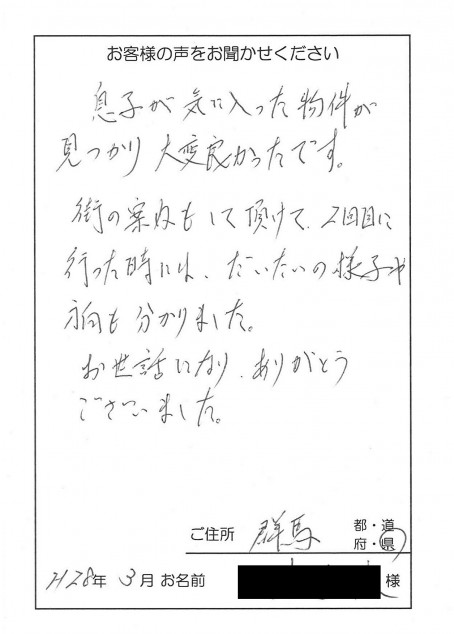 お客様の声をお聞かせください
息子が気に入った物件が
見つかり大変良かったです。
街の案内もして頂けて、2回目に
行った時には、だいたいの様子や
方向も分かりました。
お世話になり、ありがとう
ございました。
ご住所 群馬 都・道 府・県
H28年 3月 お名前 様